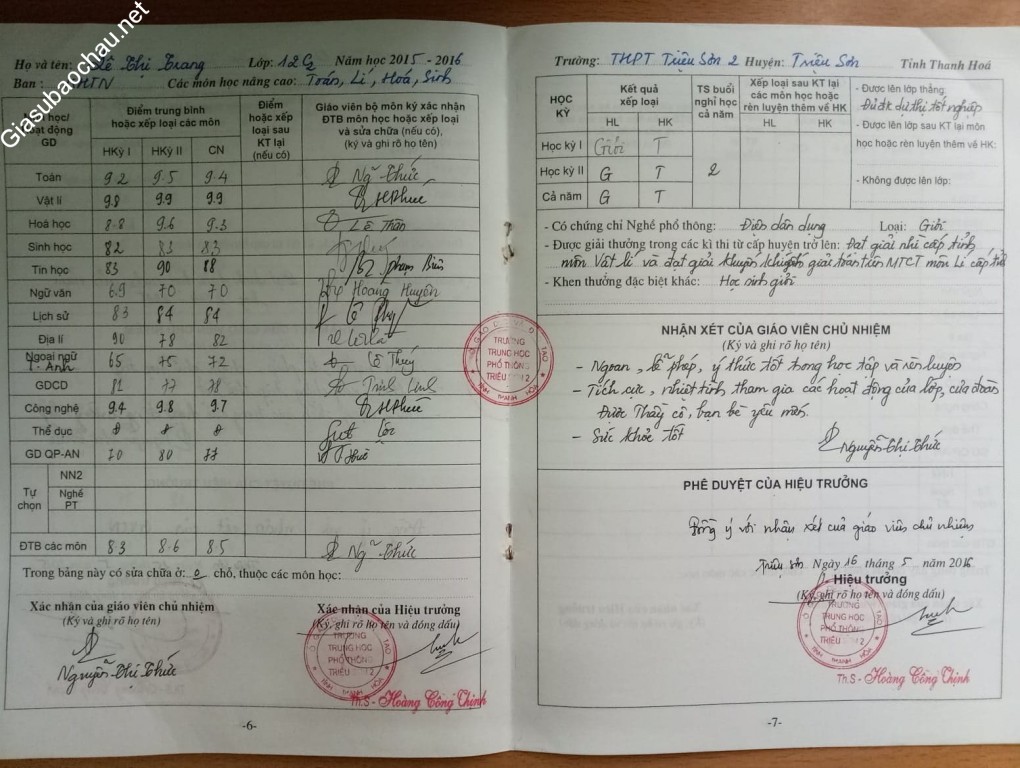 Giasubaochau.net
Họ và tên: Lê Thị Trang Lớp: 12C2 Năm học 2015 - 2016
Ban: KHTN Các môn học nâng cao: Toán, Lí, Hoá, Sinh
Môn học/ Hoạt động GD
Điểm trung bình hoặc xếp loại các môn
HKỳ I HKỳ II CN
Điểm hoặc xếp loại sau KT lại (nếu có)
Giáo viên bộ môn ký xác nhận ĐTB môn học hoặc xếp loại và sửa chữa (nếu có), (ký và ghi rõ họ tên)
Toán 9.2 9.5 9.4 Ng~ Thức
Vật lí 9.8 9.9 9.9
Hoá học 8.8 9.6 9.3 Lê Thảo
Sinh học 82 83 83
Tin học 83 90 88 phạm Biên
Ngữ văn 6.9 70 70 Hoàng Huyên
Lịch sử 83 84 84
Địa lí 90 78 82
Ngoại ngữ T. Anh 65 75 72 Lê Thuý
GDCD 81 77 78 Trịnh Linh
Công nghệ 9.4 9.8 9.7
Thể dục đ đ đ
GD QP-AN 70 80 77
Tự chọn
NN2
Nghề PT
ĐTB các môn 8.3 8.6 85 Ng~ Thức
Trong bảng này có sửa chữa ở: 0 chỗ, thuộc các môn học:
Xác nhận của giáo viên chủ nhiệm
(Ký và ghi rõ họ tên)
Nguyễn Thị Thức
Xác nhận của Hiệu trưởng
(Ký, ghi rõ họ tên và đóng dấu)
TRƯỜNG
TRUNG HỌC
PHỔ THÔNG
TRIỆU SƠN 2
TỈNH THANH HÓA
Th.S - Hoàng Công Thịnh
-6-
SỞ GIÁO DỤC VÀ ĐÀO TẠO
TRƯỜNG
TRUNG HỌC
PHỔ THÔNG
TRIỆU SƠN 2
TỈNH THANH HÓA
Trường: THPT Triệu Sơn 2 Huyện: Triệu Sơn Tỉnh Thanh Hoá
HỌC KỲ
Kết quả xếp loại
HL HK
TS buổi nghỉ học cả năm
Xếp loại sau KT lại các môn học hoặc rèn luyện thêm về HK
HL HK
Học kỳ I Giỏi T
Học kỳ II G T 2
Cả năm G T
- Được lên lớp thẳng:
Đủ đk dự thi tốt nghiệp
- Được lên lớp sau KT lại môn
học hoặc rèn luyện thêm về HK:
- Không được lên lớp:
- Có chứng chỉ Nghề phổ thông: Điện dân dụng Loại: Giỏi
- Được giải thưởng trong các kì thi từ cấp huyện trở lên: Đạt giải nhì cấp tỉnh
môn Vật lí và đạt giải khuyến khích giải toán trên MTCT môn Lí cấp tỉnh
- Khen thưởng đặc biệt khác: Học sinh giỏi
NHẬN XÉT CỦA GIÁO VIÊN CHỦ NHIỆM
(Ký và ghi rõ họ tên)
- Ngoan, lễ phép, ý thức tốt trong học tập và rèn luyện
- Tích cực, nhiệt tình tham gia các hoạt động của lớp, của đoàn
Được Thầy cô, bạn bè yêu mến.
- Sức khỏe tốt
Nguyễn Thị Thức
PHÊ DUYỆT CỦA HIỆU TRƯỞNG
Đồng ý với nhận xét của giáo viên chủ nhiệm
Triệu Sơn Ngày 16 tháng 5 năm 2016
Hiệu trưởng
(Ký, ghi rõ họ tên và đóng dấu)
TRƯỜNG
TRUNG HỌC
PHỔ THÔNG
TRIỆU SƠN 2
TỈNH THANH HÓA
Th.S - Hoàng Công Thịnh
-7-